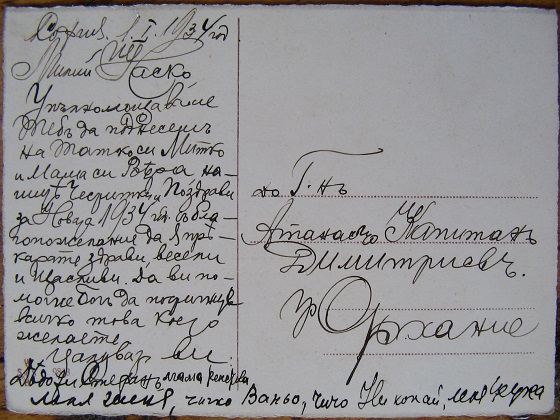 София, 1.I.1934 год
Милий Наско
Упълномощаваме
Тебъ да поднесешъ
на Татко си Митко
и Мама си Вѣра на-
шитѣ Честитки и Поздрави
за Новия 1934 год. съ бла-
гопожелание да я прѣ-
карате здрави, весели
и щастливи. Да ви по-
могне Богъ да постигнете
всичко това което
желаете.
Целуват ви.
Дѣдо ти Стефанъ, мама
леля Геня, чичо Ваньо, чичо Николай, леля
до Г-нъ
Атанасъ Капитанъ
Димитриевъ.
гр Орхание